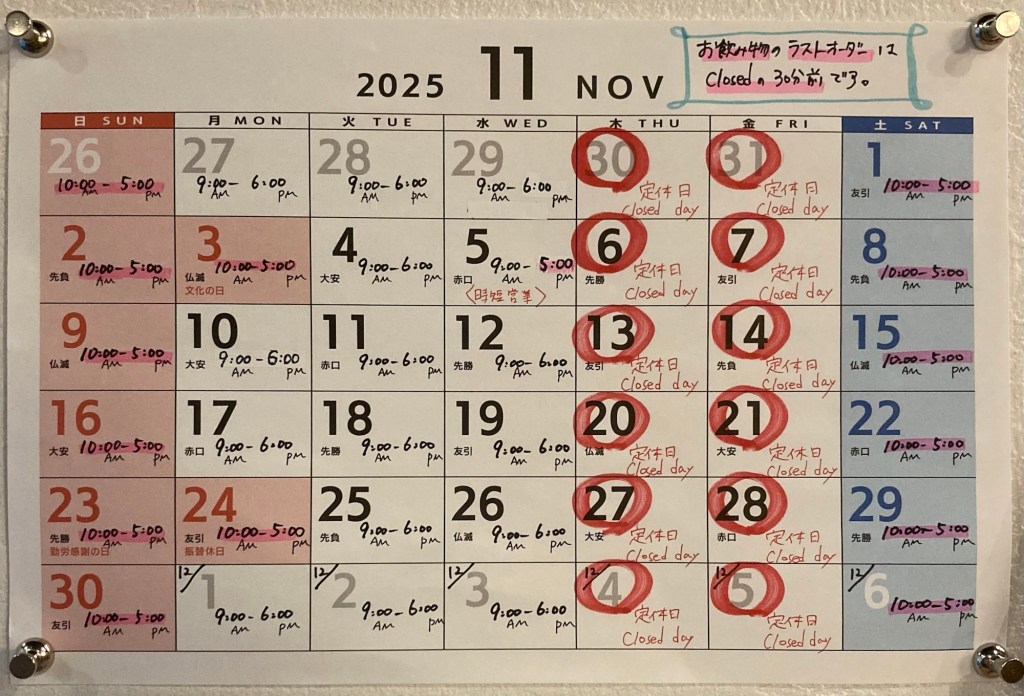 2025 11 NOV
お飲み物のラストオーダーは
Closedの30分前です。
日 SUN 月 MON 火 TUE 水 WED 木 THU 金 FRI 土 SAT
26 10:00-5:00 AM PM
27 9:00-6:00 AM PM
28 9:00-6:00 AM PM
29 9:00-6:00 AM PM
30 定休日 Closed day
31 定休日 Closed day
1 友引 10:00-5:00 AM PM
2 先負 10:00-5:00 AM PM
3 仏滅 10:00-5:00 AM PM 文化の日
4 大安 9:00-6:00 AM PM
5 赤口 9:00-5:00 AM PM 〈時短営業〉
6 先勝 定休日 Closed day
7 友引 定休日 Closed day
8 先負 10:00-5:00 AM PM
9 仏滅 10:00-5:00 AM PM
10 大安 9:00-6:00 AM PM
11 赤口 9:00-6:00 AM PM
12 先勝 9:00-6:00 AM PM
13 友引 定休日 Closed day
14 先負 定休日 Closed day
15 仏滅 10:00-5:00 AM PM
16 大安 10:00-5:00 AM PM
17 赤口 9:00-6:00 AM PM
18 先勝 9:00-6:00 AM PM
19 友引 9:00-6:00 AM PM
20 仏滅 定休日 Closed day
21 大安 定休日 Closed day
22 赤口 10:00-5:00 AM PM
23 先勝 10:00-5:00 AM PM 勤労感謝の日
24 友引 10:00-5:00 AM PM 振替休日
25 先負 9:00-6:00 AM PM
26 仏滅 9:00-6:00 AM PM
27 大安 定休日 Closed day
28 赤口 定休日 Closed day
29 先勝 10:00-5:00 AM PM
30 友引 10:00-5:00 AM PM
12/1 9:00-6:00 AM PM
12/2 9:00-6:00 AM PM
12/3 9:00-6:00 AM PM
12/4 定休日 Closed day
12/5 定休日 Closed day
12/6 10:00-5:00 AM PM